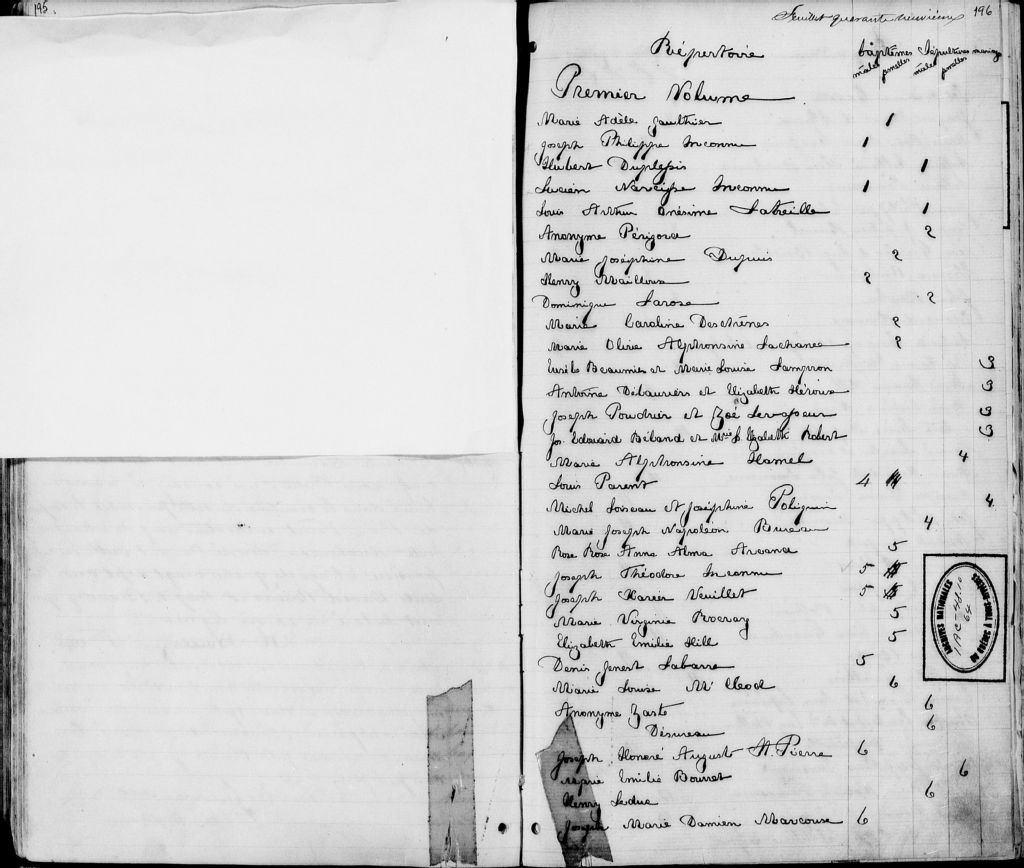 195.
Feuillet quarante neuvième 196
Répertoire baptêmes Sépultures mariages
mâles femelles mâles femelles
Premier Volume
Marie Adèle Gaulthier 1
Joseph Philippe Inconnu 1
Hubert Duplessis 1
Lucien Narcisse Inconnu 1
Louis Arthur Onésime Latreille 1
Anonyme Périgord 2
Marie Joséphine Dupuis 2
Henry Mailloux 2
Dominique Larose 2
Marie Caroline Deschênes 2
Marie Olive Alphonsine Lachance 2
Beaumier et Marie Louise Lampron 3
Antoine Délauriers et Elizabeth Héroux 3
Joseph Poudrier et Zoé Levasseur 3
Jos. Edouard Béland et Mrie L. Elzabeth Robert 3
Marie Alphonsine Hamel 4
Louis Parent 4
Michel Loiseau et Joséphine Poliquin 4
Marie Joseph Napoléon Bureau 4
Rose Rose Anna Alma Arcand 5
Joseph Théodore Inconnu 5
Joseph Xavier Veuillet 5
Marie Virginie 5
Elizabeth Emilie Hill 5
Denis Genest Labarre 5
Marie Louise Mc Cleod 6
Anonyme 6
Désureau 6
Joseph Honoré August St. Pierre 6
Marie Emilie Bourret 6
Henry Leduc 6
Joseph Marie Damien Marcoux 6
ARCHIVES NATIONALES
DU QUÉBEC À TROIS-RIVIÈRES